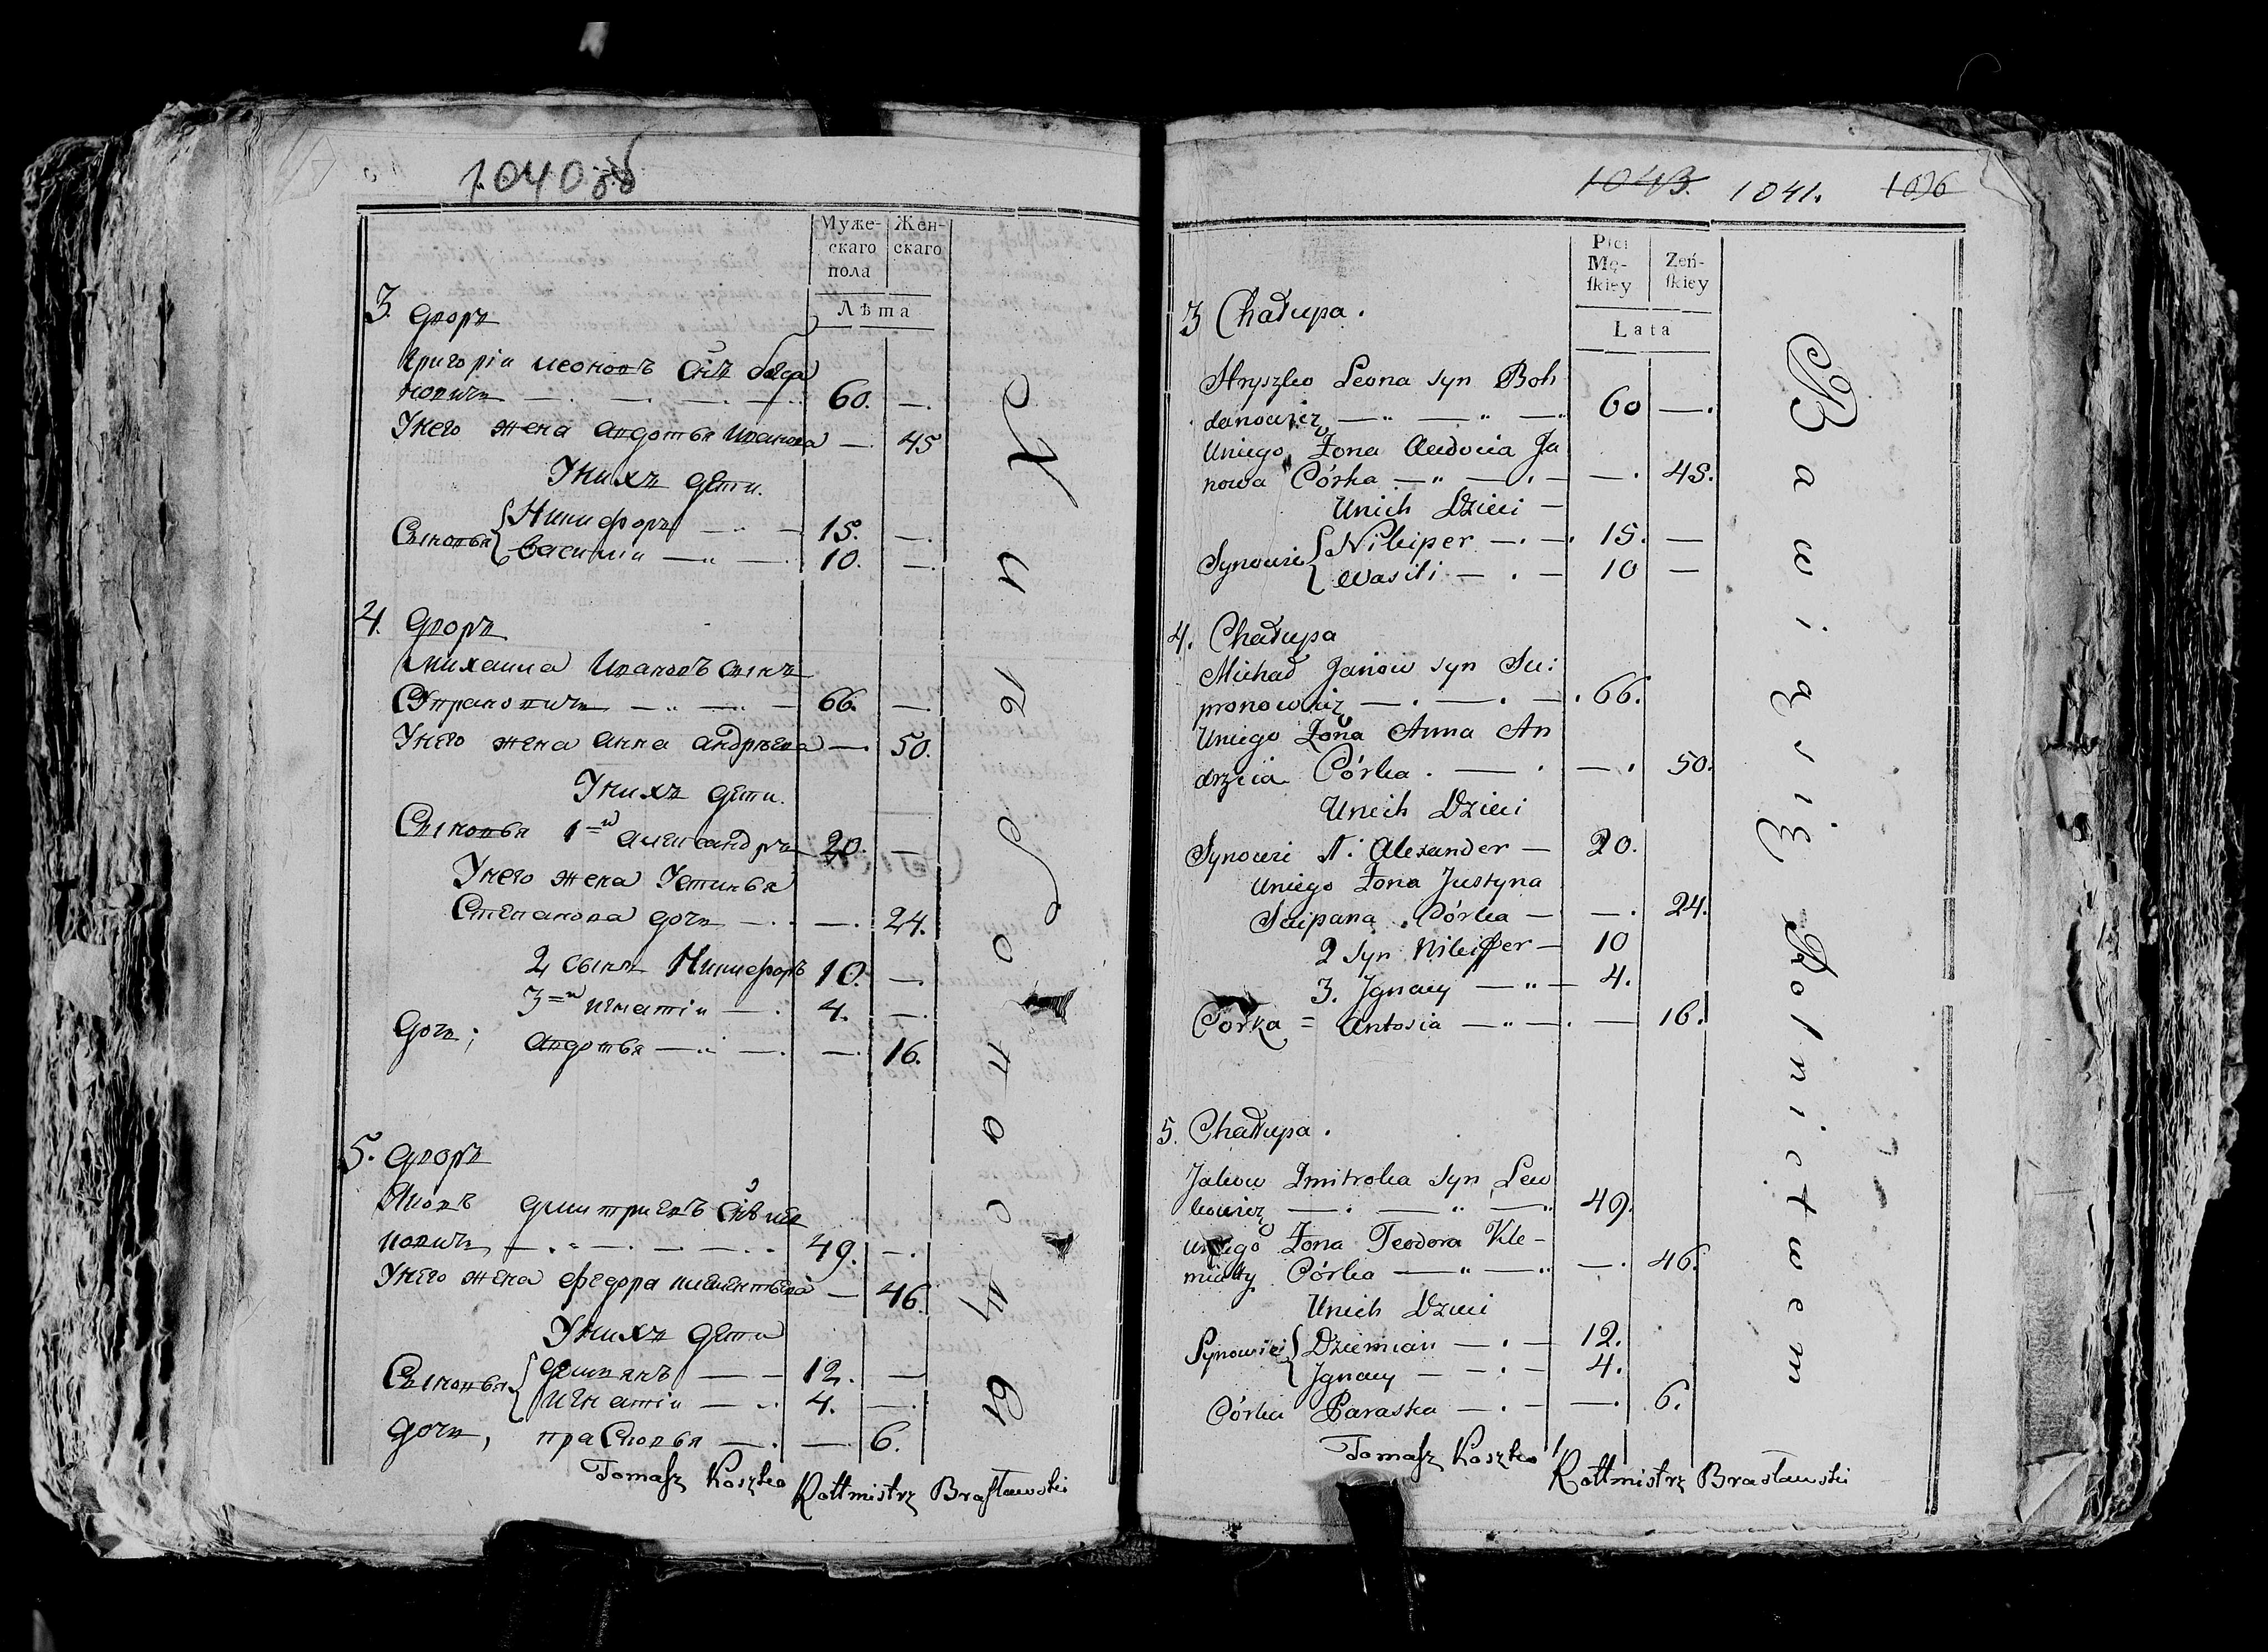 1040 об
Муже-
скаго
пола
Жен-
скаго
Лѣта
3. Дворъ
Григоріи Леоновъ Снъ богда
новичъ — . — . — 60. — .
У него жена Авдотья Иванова — 45
У нихъ дѣти.
Сыновья { Никифоръ — 15. — .
Василіи — 10. — .
4. Дворъ
Михаила Ивановъ сынъ
— 66. — .
У него жена Анна Андрѣева — 50.
У нихъ дѣти.
Сыновья 1=й Александръ 20. —
У него жена Устинья
Степанова дочь — . — . 24.
2 сынъ Никифоръ 10. — .
3=й Игнатіи — . 4. — .
Дочь; Авдотья — . — . 16.
5. Дворъ
Яковъ Дмитріевъ Снъ Лев
ковичъ — . — 49. — .
У него жена Федора Клементьева — 46.
У нихъ дѣти
Сыновья { Демьянъ — 12. —
Игнатіи — 4. — .
Дочь, прасковья — . — 6.
Tomasz Koszko Rottmistrz Brasławski
Хлебопашеством
1043. 1041. 1036
Płci
Mę-
skiey
Żeń-
skiey
Lata
3 Chałupa.
Hryszko Leona syn Boh
danowicz — 60 — .
U niego Żona Audocia Ja
nowa Córka — . 45.
U nich Dzieci —
Synowie { Nikiper — . 15. —
Wasili — . 10 —
4. Chałupa
Michał Janów syn Su:
pronowicz — . — . 66.
U niego Żona Anna An
drzeia Córka . — . — . 50.
U nich Dzieci
Synowie 1. Alexander — 20.
U niego Żona Justyna
Sciepana Córka — — . 24.
2 syn Nikiper — 10
3. Jgnacy — 4.
Corka = Antosia — . — 16.
5. Chałupa.
Jakow Dmitroka syn Lew
kowicz — . — 49.
U niego Żona Teodora Kle-
mięty Córka — — . 46.
U nich Dzieci
Synowie { Dziemian — . — 12.
Jgnacy — . — 4.
Córka Paraska — . — — . 6.
Tomasz Koszko Rottmistrz Brasławski
Bawią się Rolnictwem